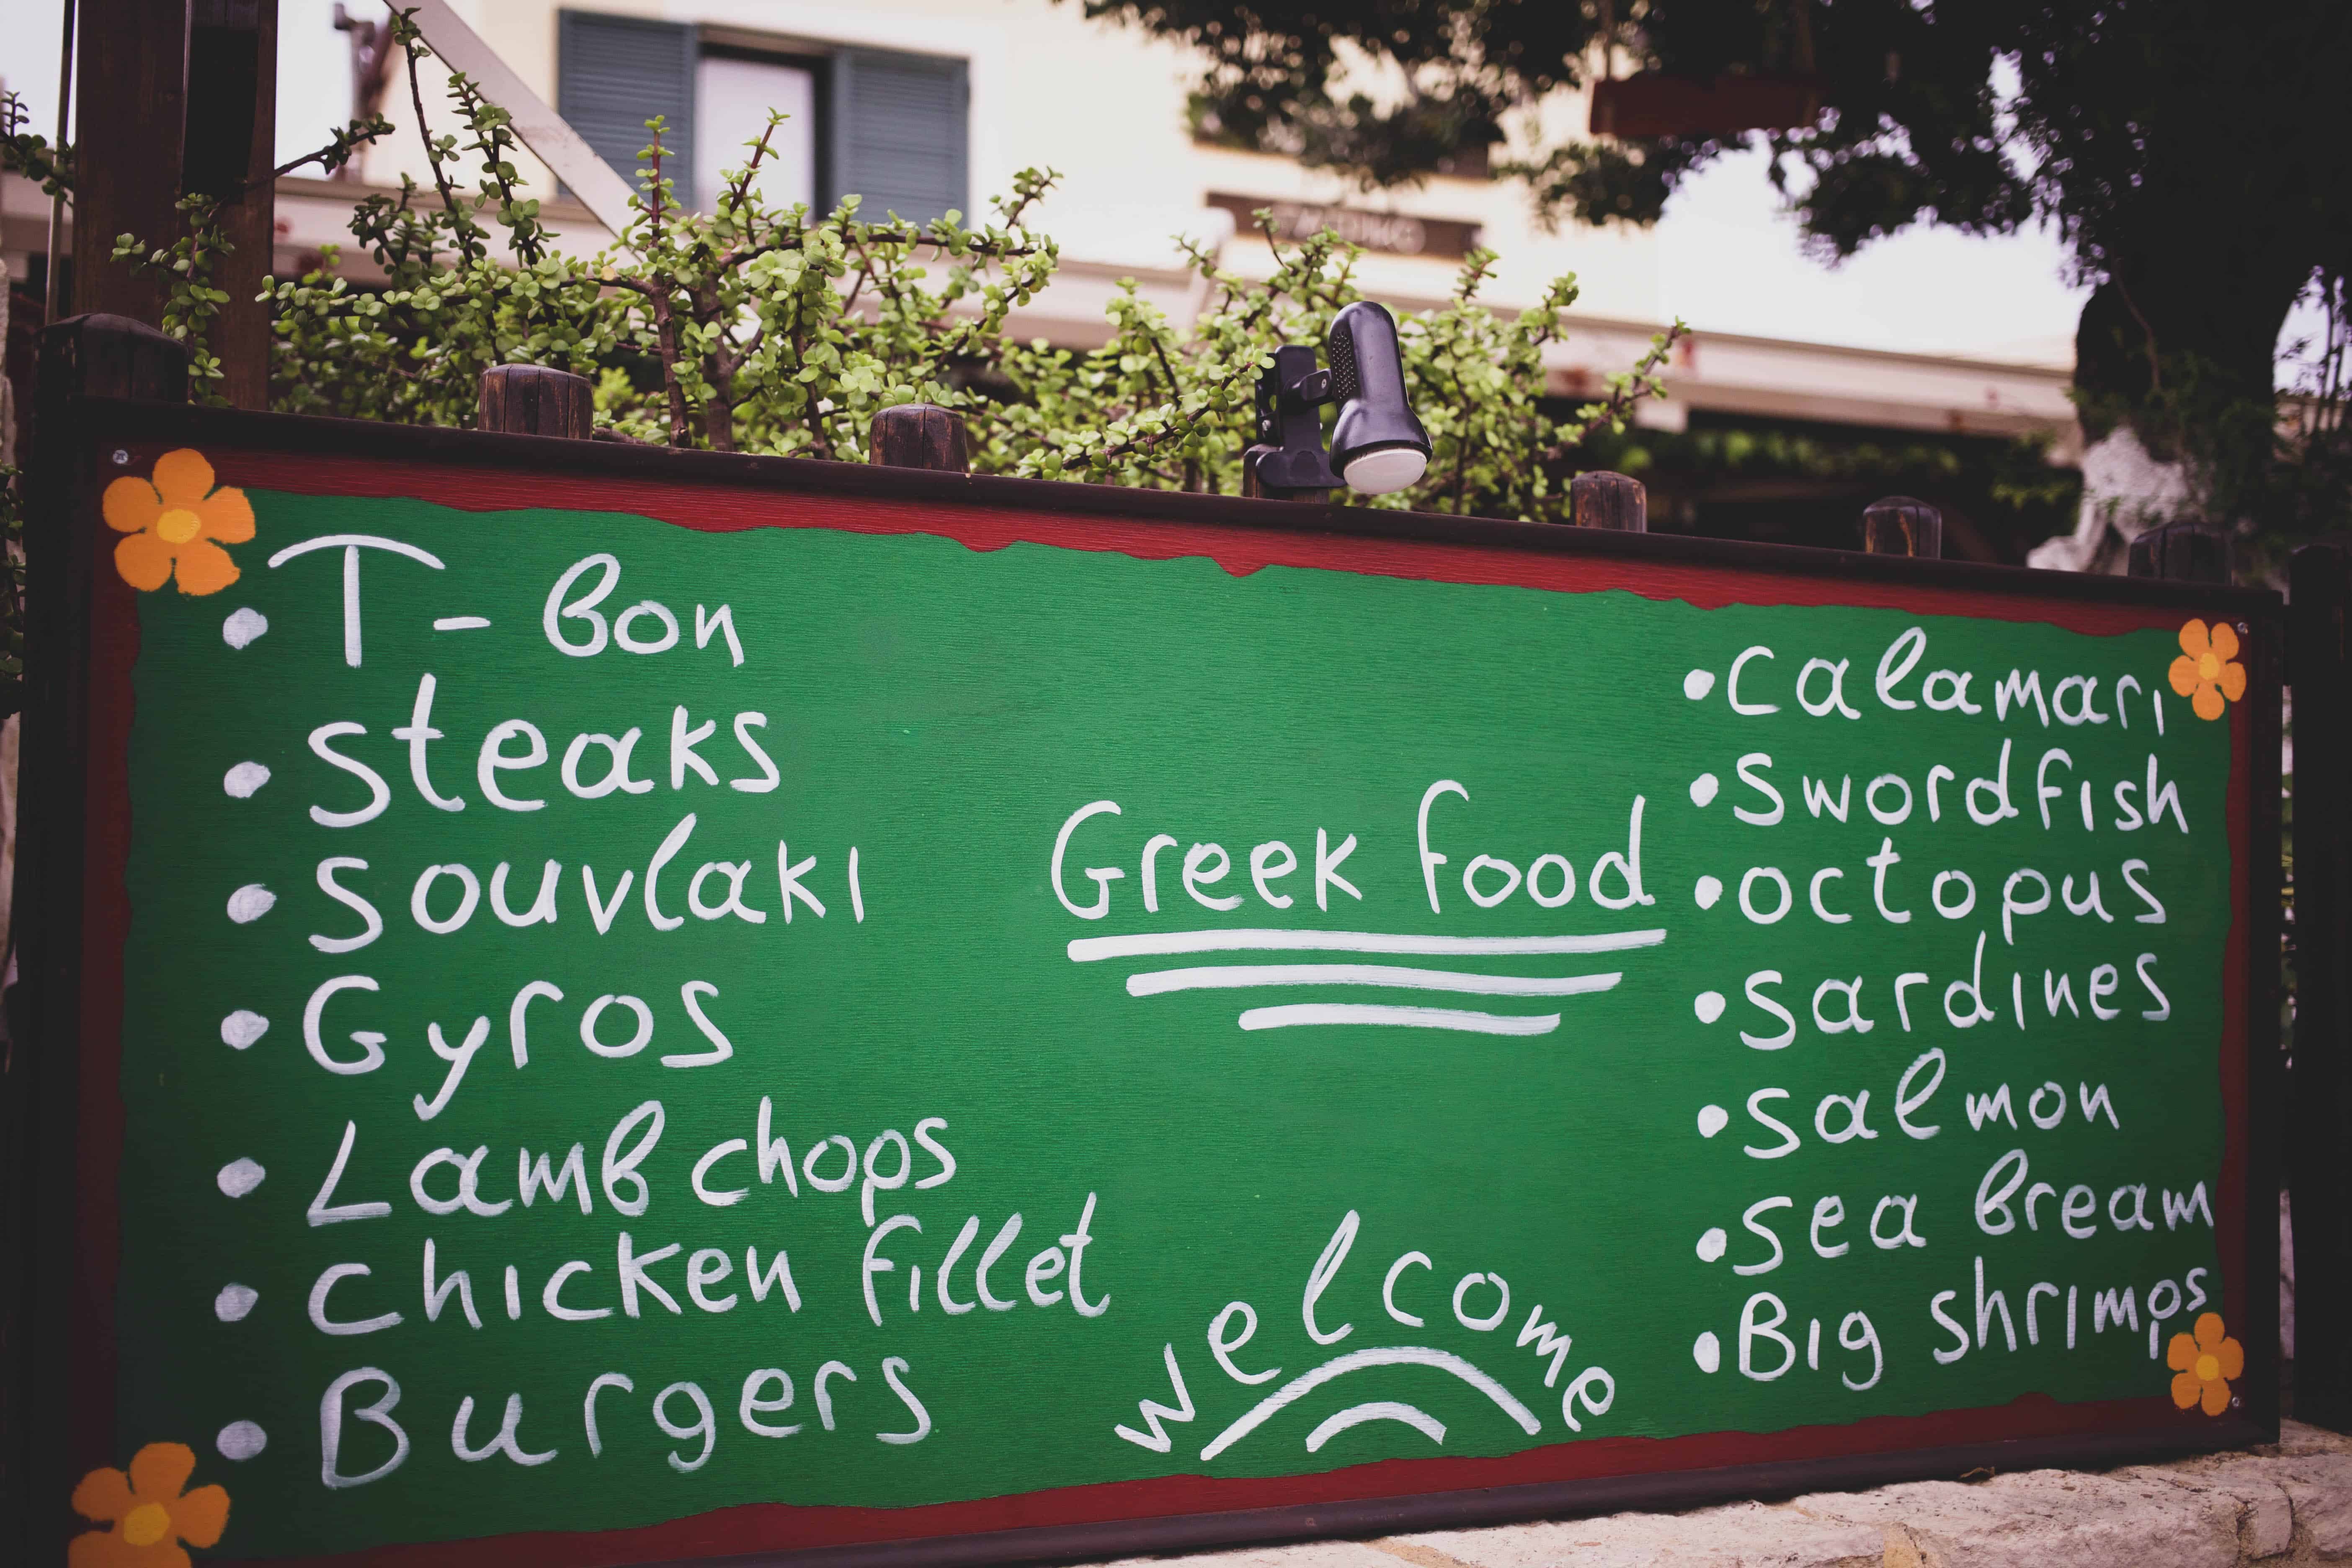 • T-bon
• steaks
• souvlaki
• Gyros
• Lamb chops
• chicken fillet
• Burgers
Greek food
welcome
• calamari
• swordfish
• octopus
• sardines
• salmon
• sea bream
• Big shrimps